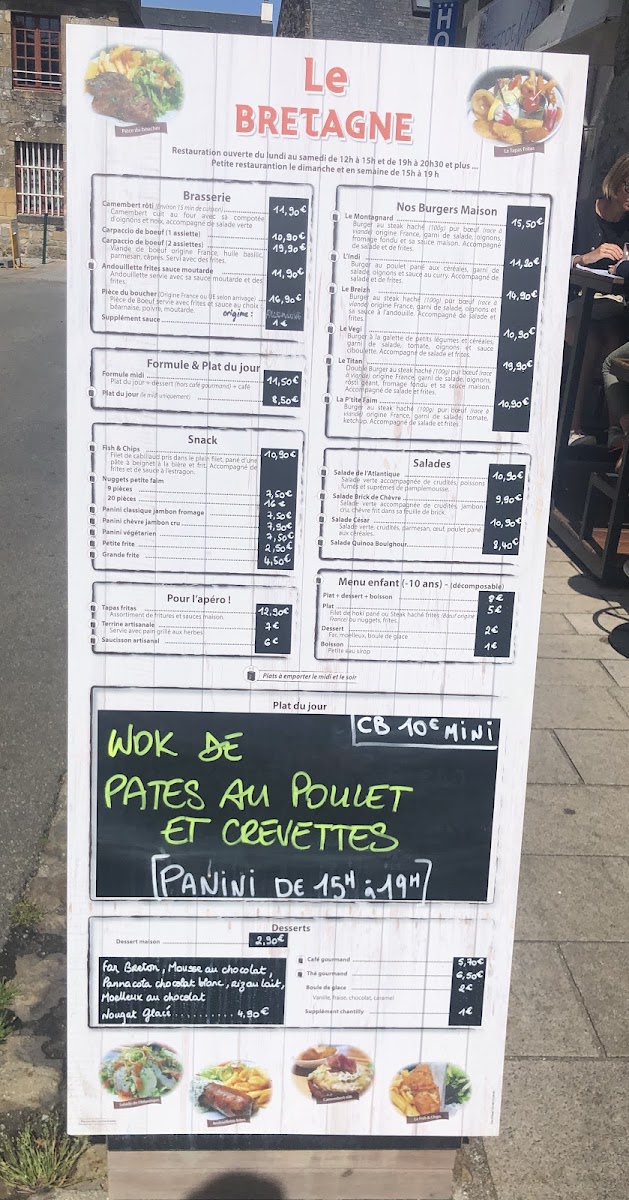 HO
Pièce du boucher
Le
BRETAGNE
Le Tapas Fritas
Restauration ouverte du lundi au samedi de 12h à 15h et de 19h à 20h30 et plus ...
Petite restauration le dimanche et en semaine de 15h à 19 h
Brasserie
Camembert rôti (Environ 15 min de cuisson) 11,90€
Camembert cuit au four avec sa compotée
d'oignons et noix, accompagné de salade verte
Carpaccio de boeuf (1 assiette) 10,90€
Carpaccio de boeuf (2 assiettes) 19,90€
Viande de boeuf origine France, huile basilic,
parmesan, câpres. Servi avec des frites.
Andouillette frites sauce moutarde 11,90€
Andouillette servie avec sa sauce moutarde et des
frites.
Pièce du boucher (Origine France ou UE selon arrivage) 16,90€
Pièce de Boeuf servie avec frites et sauce au choix :
béarnaise, poivre, moutarde. origine :
Supplément sauce 1€
Formule & Plat du jour
Formule midi 11,50€
Plat du jour + dessert (hors café gourmand) + café
Plat du jour (le midi uniquement) 8,50€
Snack
Fish & Chips 10,90€
Filet de cabillaud pris dans le plein filet, pané d'une
pâte à beignet à la bière et frit. Accompagné de
frites et de sauce à l'estragon.
Nuggets petite faim
9 pièces 7,50€
20 pièces 16€
Panini classique jambon fromage 7,50€
Panini chèvre jambon cru 7,90€
Panini végétarien 7,50€
Petite frite 2,50€
Grande frite 4,50€
Pour l'apéro !
Tapas fritas 12,90€
Assortiment de fritures et sauces maison.
Terrine artisanale 7€
Servie avec pain grillé aux herbes
Saucisson artisanal 6€
Nos Burgers Maison
Le Montagnard 15,50€
Burger au steak haché (100g) pur bœuf (race à
viande) origine France, garni de salade, oignons,
fromage fondu et sa sauce maison. Accompagné
de salade et de frites.
L'indi 11,90€
Burger au poulet pané aux céréales, garni de
salade, oignons et sauce au curry. Accompagné de
salade et de frites.
Le Breizh 14,90€
Burger au steak haché (100g) pur bœuf (race à
viande) origine France, garni de salade, oignons et
sa sauce à l'andouille. Accompagné de salade et
frites.
Le Vegi 10,90€
Burger à la galette de petits légumes et céréales,
garni de salade, tomate, oignons et sauce
ciboulette. Accompagné de salade et frites.
Le Titan 19,90€
Double Burger au steak haché (100g) pur bœuf (race à
viande) origine France, garni de salade, oignons,
rösti géant, fromage fondu et sa sauce maison.
Accompagné de salade et frites.
La P'tite Faim 10,90€
Burger au steak haché (100g) pur bœuf (race à
viande) origine France, garni de salade, tomate,
ketchup. Accompagné de salade et frites.
Salades
Salade de l'Atlantique 10,90€
Salade verte accompagnée de crudités, poissons
fumés et suprêmes de pamplemousse.
Salade Brick de Chèvre 9,90€
Salade verte accompagnée de crudités, jambon
cru, chèvre frit dans sa feuille de brick.
Salade César 10,90€
Salade verte, crudités, parmesan, œuf, poulet pané
aux céréales.
Salade Quinoa Boulghour 8,40€
Menu enfant (-10 ans) - (décomposable)
Plat + dessert + boisson 8€
Plat 5€
Filet de hoki pané ou Steak haché frites (Bœuf origine
France) ou nuggets, frites
Dessert 2€
Far, moelleux, boule de glace
Boisson 1€
Petite eau sirop
Plats à emporter le midi et le soir
Plat du jour
CB 10€ MINI
WOK DE
PATES AU POULET
ET CREVETTES
[PANINI DE 15H à 19H]
Desserts
Dessert maison 2,90€
Far Breton, Mousse au chocolat,
Pannacota chocolat blanc, riz au lait,
Moelleux au chocolat
Nougat Glacé .......... 4,90€
Café gourmand 5,70€
Thé gourmand 6,50€
Boule de glace 2€
Vanille, fraise, chocolat, caramel
Supplément chantilly 1€
Salade de l'Atlantique
Andouillette frites
Camembert rôti
Le Fish & Chips